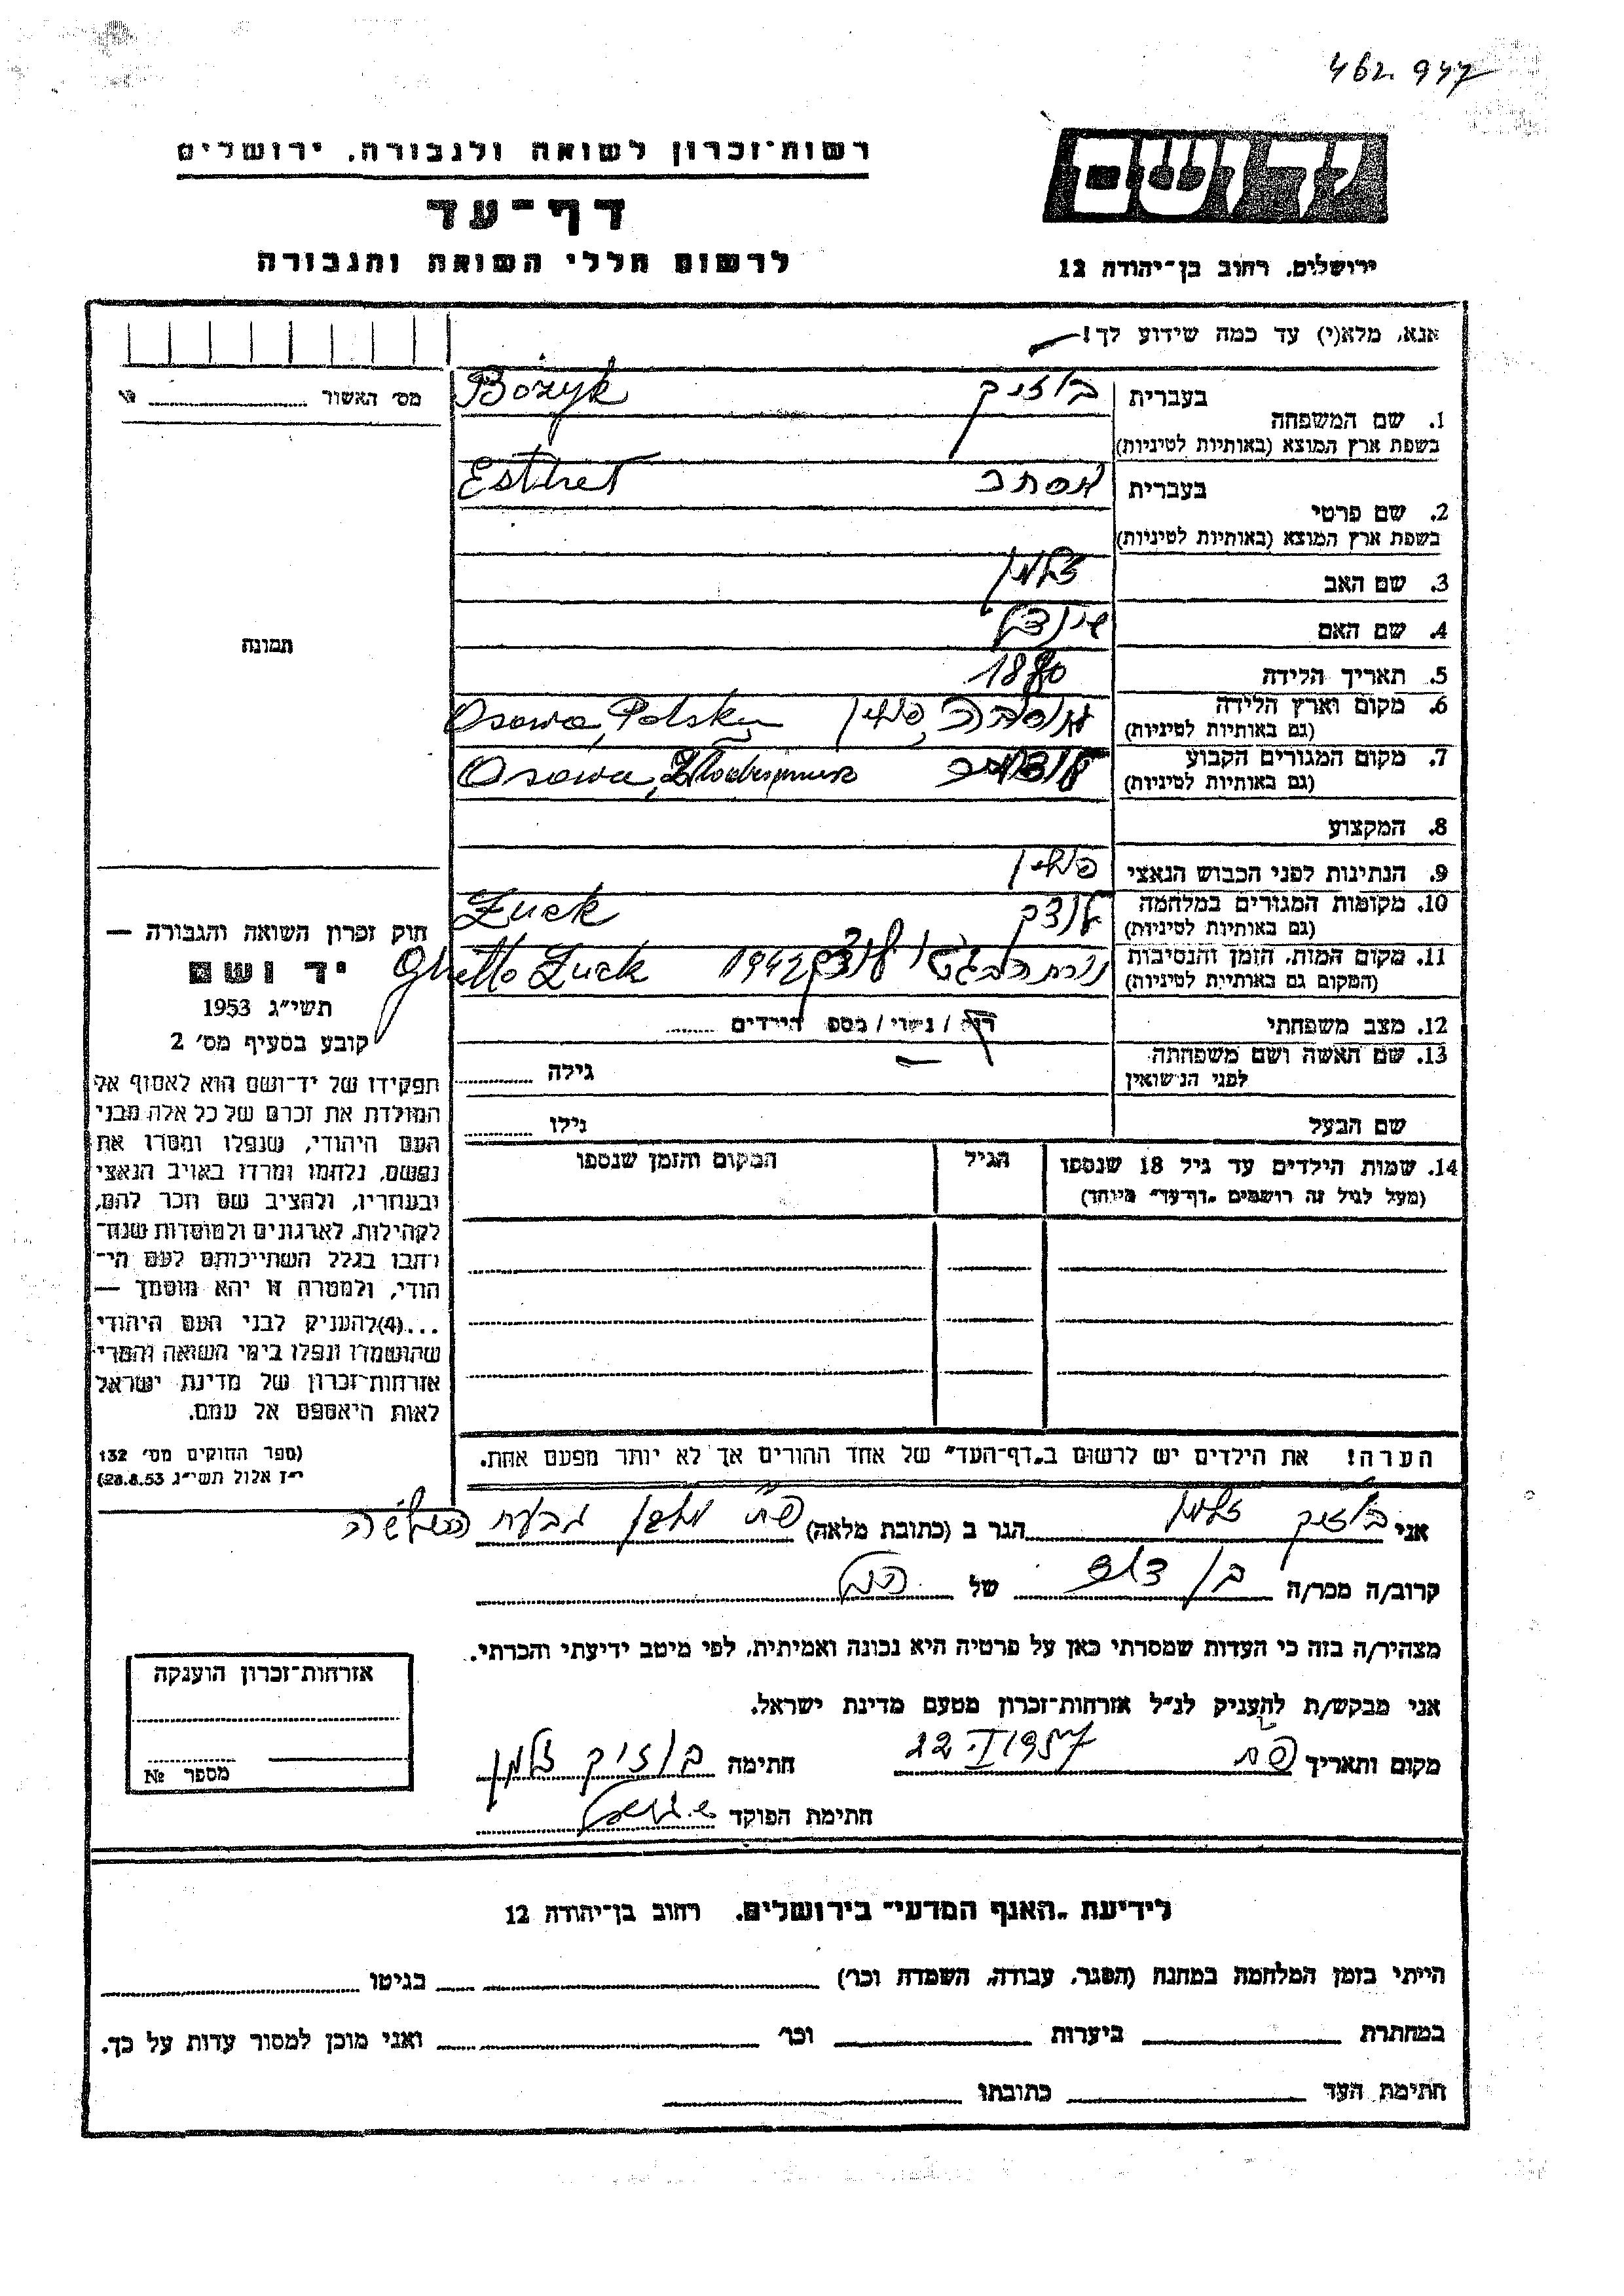 462.947
רשות־זכרון לשואה ולגבורה, ירושלים
דף־עד
לרשום חללי השואה והגבורה
יד ושם
ירושלים, רחוב בן־יהודה 12
אנא, מלא(י) עד כמה שידוע לך!
מס׳ האשור №
1. שם המשפחה בעברית בוזיק Bożyk
בשפת ארץ המוצא (באותיות לטיניות)
2. שם פרטי בעברית אסתר Esther
בשפת ארץ המוצא (באותיות לטיניות)
3. שם האב זלמן
4. שם האם שיינדל
5. תאריך הלידה 1880
6. מקום וארץ הלידה פולין Osowa, Polska
(גם באותיות לטיניות)
7. מקום המגורים הקבוע Osowa,
(גם באותיות לטיניות)
8. המקצוע
9. הנתינות לפני הכבוש הנאצי פולין
10. מקומות המגורים במלחמה לודק Łuck
(גם באותיות לטיניות)
11. מקום המות, הזמן והנסיבות 1942 Ghetto Łuck
(המקום גם באותיות לטיניות)
12. מצב משפחתי רוק / נשוי / מספ הילדים
13. שם האשה ושם משפחתה לפני הנשואין גילה
שם הבעל גילו
14. שמות הילדים עד גיל 18 שנספו הגיל המקום והזמן שנספו
(מעל לגיל זה רושמים „דף־עד״ מיוחד)
הערה! את הילדים יש לרשום ב„דף־העד״ של אחד ההורים אך לא יותר מפעם אחת.
תמונה
חוק זכרון השואה והגבורה —
יד ושם
תשי״ג 1953
קובע בסעיף מס׳ 2
תפקידו של יד־ושם הוא לאסוף אל
המולדת את זכרם של כל אלה מבני
העם היהודי, שנפלו ומסרו את
נפשם, נלחמו ומרדו באויב הנאצי
ובעוזריו, ולהציב שם וזכר להם,
לקהילות, לארגונים ולמוסדות שנח־
רבו בגלל השתייכותם לעם הי־
הודי, ולמטרה זו יהא מוסמך —
...(4)להעניק לבני העם היהודי
שהושמדו ונפלו בימי השואה והמרי
אזרחות־זכרון של מדינת ישראל
לאות היאספם אל עמם.
(ספר החוקים מס׳ 132
י״ז אלול תשי״ג 28.8.53)
אני בוזיק זלמן הגר ב (כתובת מלאה) גבעת השלושה
קרוב/ה מכר/ה בן דוד של הנ״ל
מצהיר/ה בזה כי העדות שמסרתי כאן על פרטיה היא נכונה ואמיתית, לפי מיטב ידיעתי והכרתי.
אני מבקש/ת להעניק לנ״ל אזרחות־זכרון מטעם מדינת ישראל.
מקום ותאריך 22 I 1957 חתימה בוזיק זלמן
חתימת הפוקד
אזרחות־זכרון הוענקה
מספר №
לידיעת „האגף המדעי״ בירושלים, רחוב בן־יהודה 12
הייתי בזמן המלחמה במחנה (הסגר, עבודה, השמדה וכו׳) בגיטו
במחתרת ביערות וכו׳ ואני מוכן למסור עדות על כך.
חתימת העד כתובתו